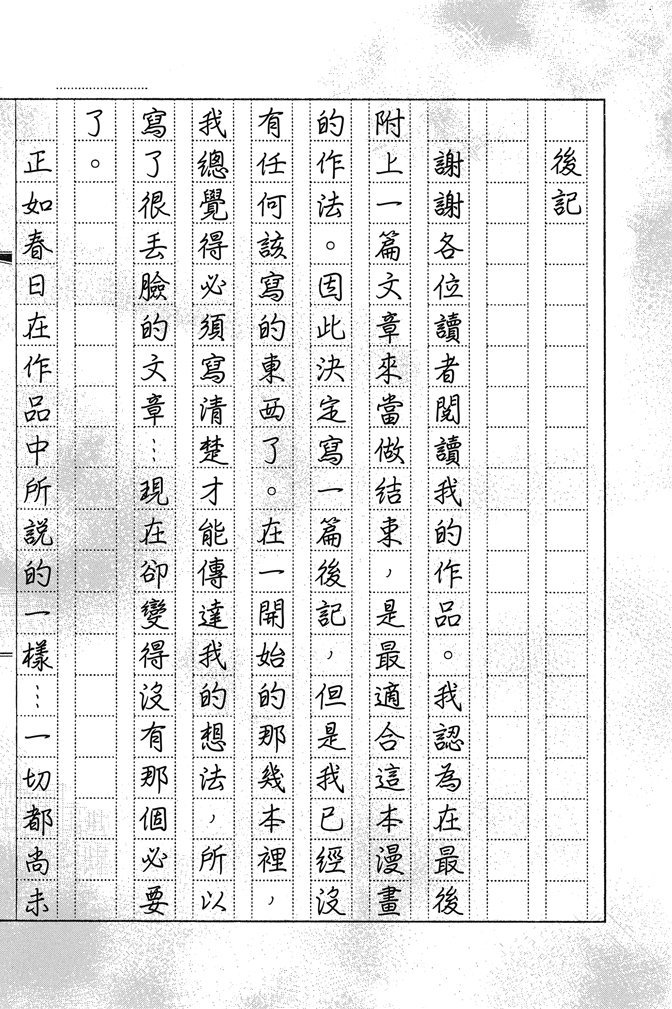 後記
謝謝各位讀者閱讀我的作品。我認為在最後
附上一篇文章來當做結束，是最適合這本漫畫
的作法。因此決定寫一篇後記，但是我已經沒
有任何該寫的東西了。在一開始的那幾本裡，
我總覺得必須寫清楚才能傳達我的想法，所以
寫了很丟臉的文章…現在卻變得沒有那個必要
了。
正如春日在作品中所説的一樣…一切都尚未